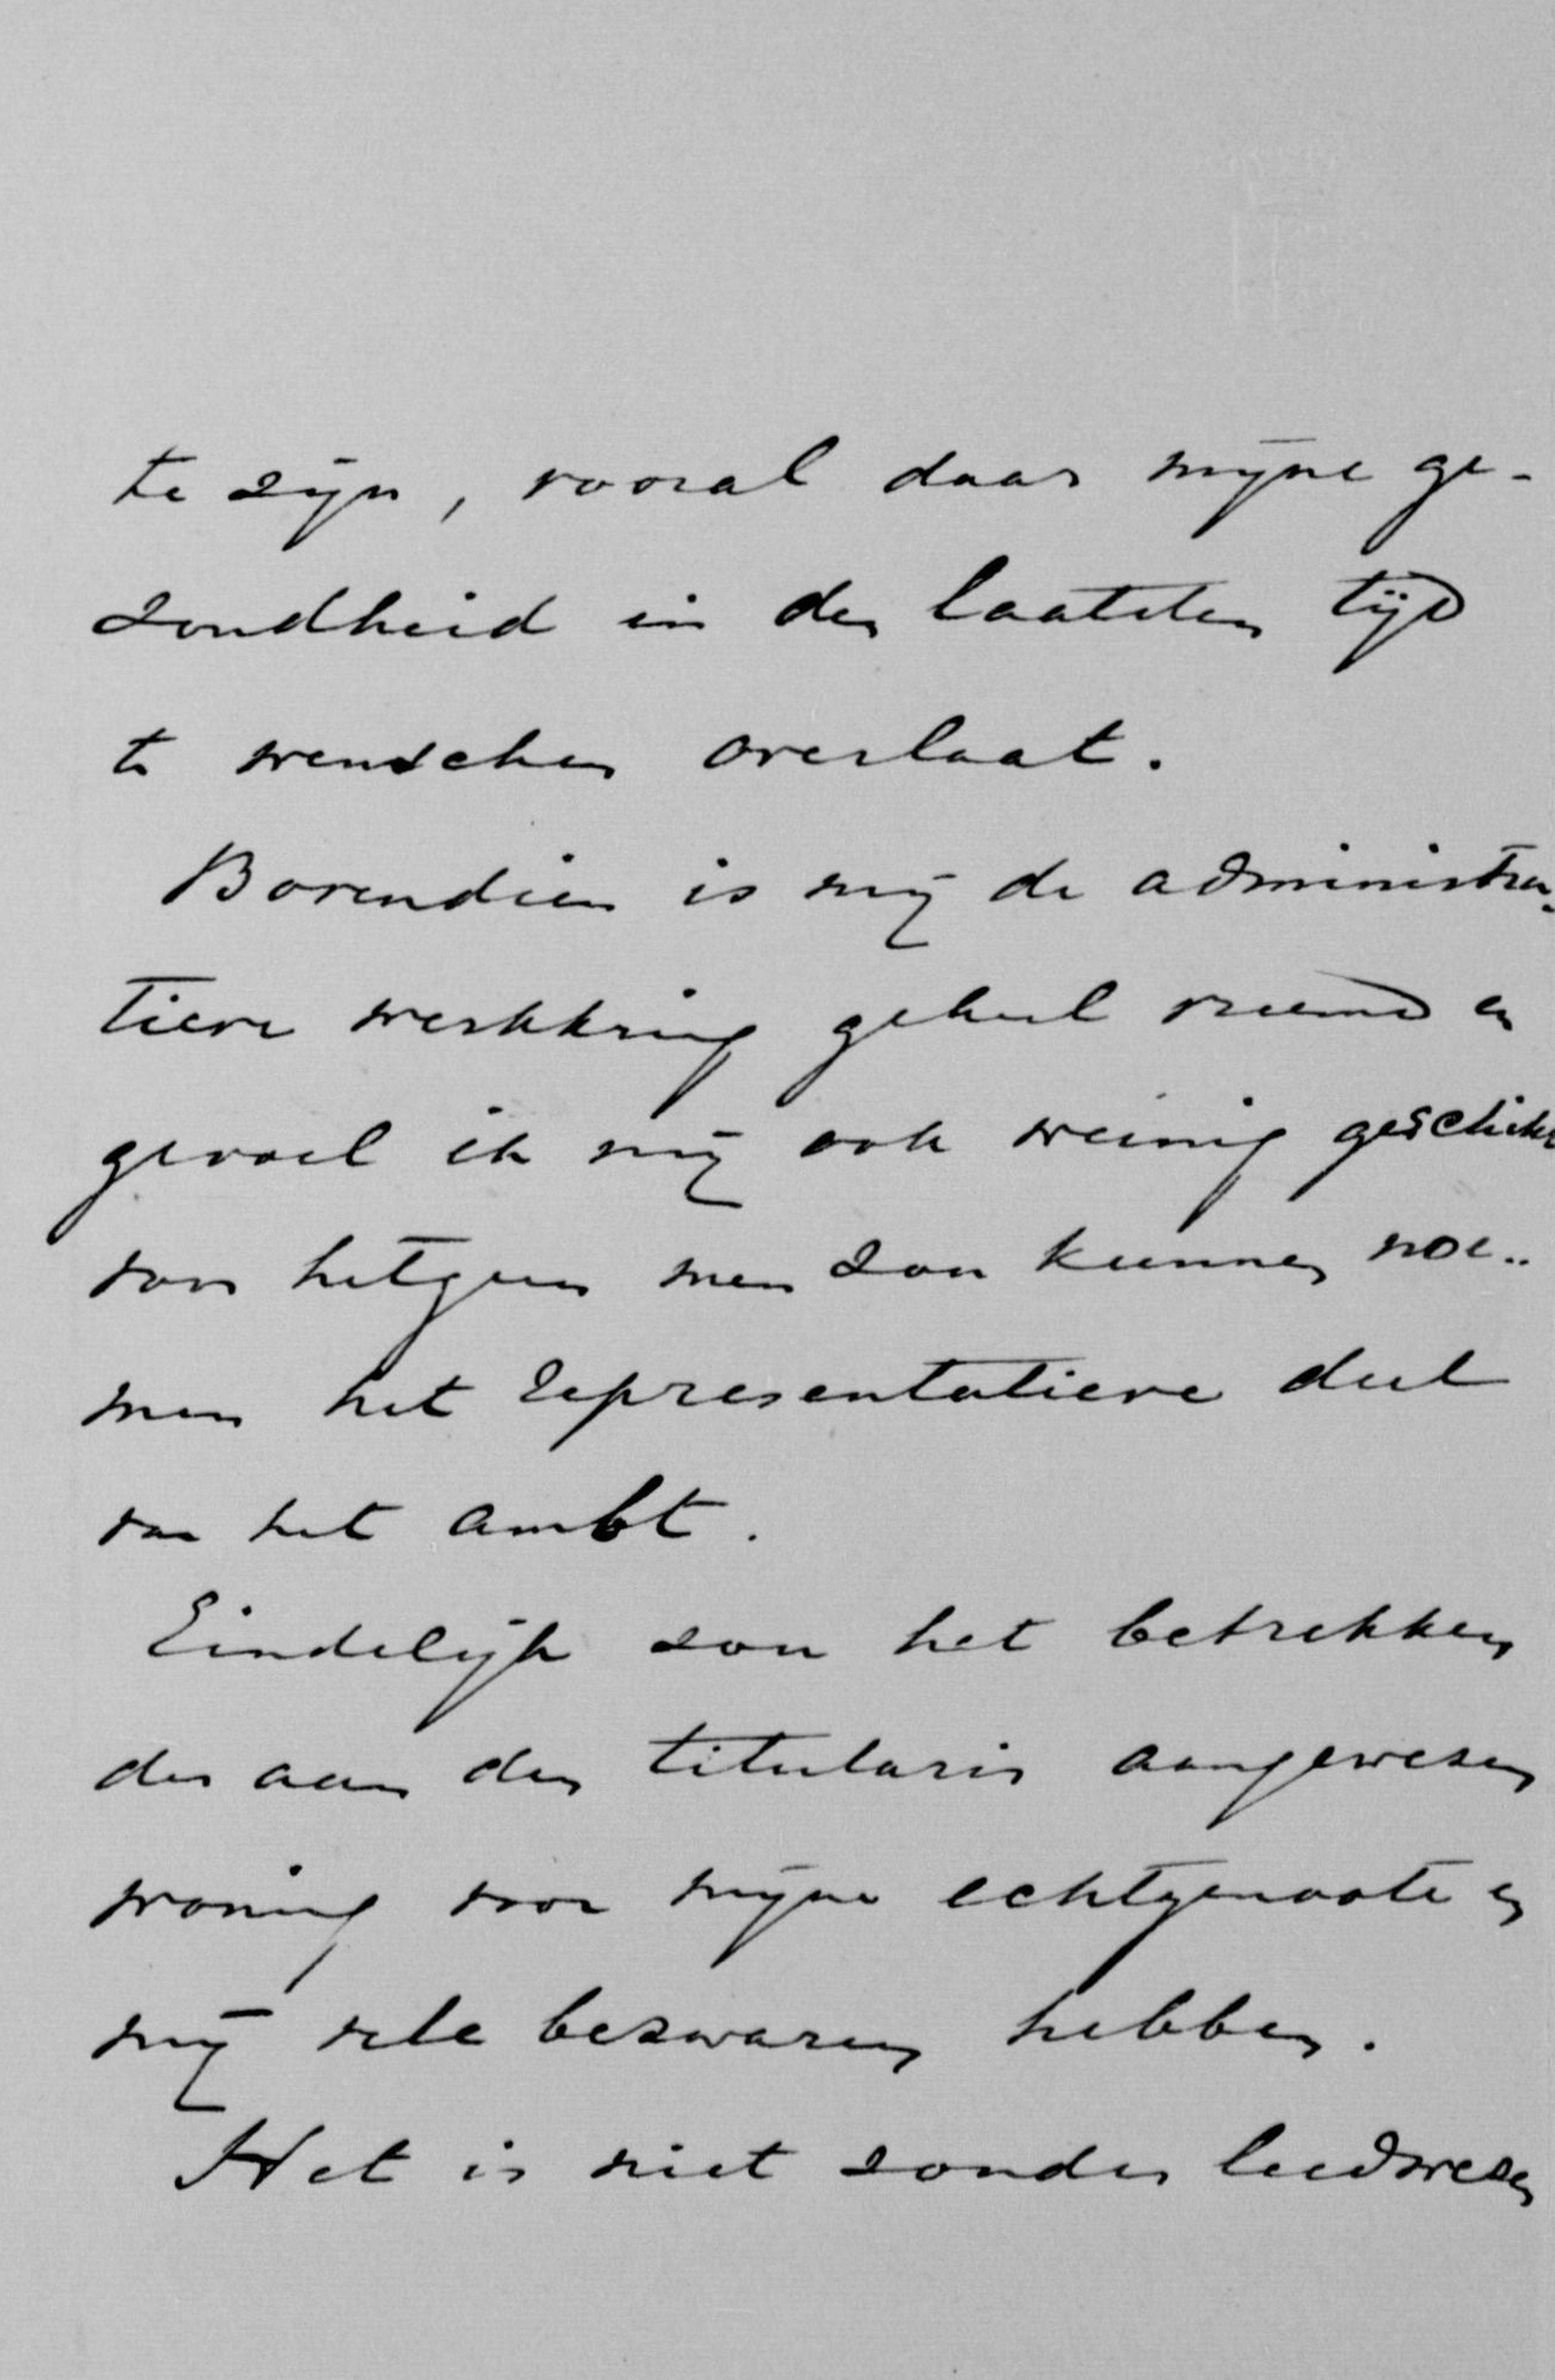 te zijn, vooral daar mijne ge-
zondheid in den laatsten tijd
te wenschen overlaat.
Bovendien is mij de administra-
tieve werkkring geheel vreemd en
gevoel ik mij ook weinig geschikt
voor hetgeen men zou kunnen noe-
men het representatieve deel
van het ambt.
Eindelijk zou het betrekken
der aan den titularis aangewezen
woning voor mijne echtgenoote en
mij vele bezwaren hebben.
Het is niet zonder leedwezen